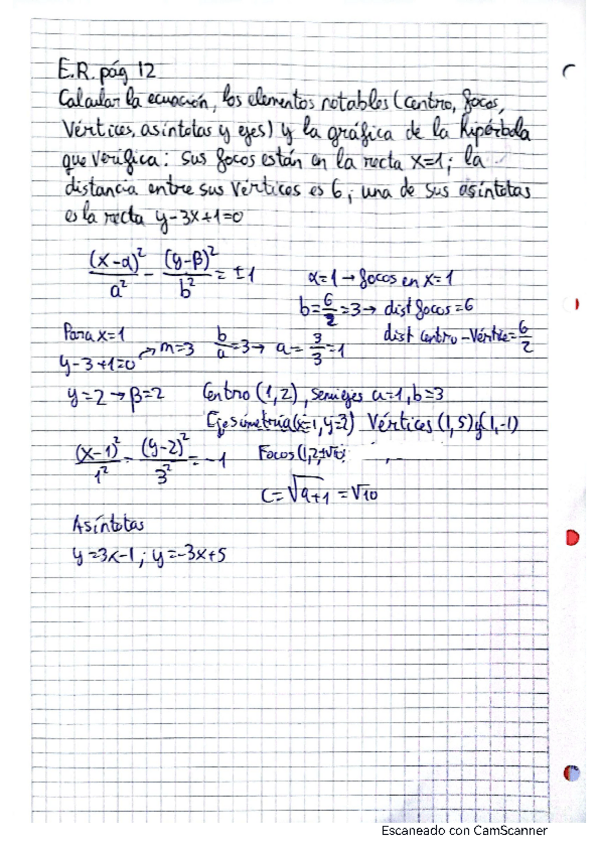 E.R. pág 12
Calcular la ecuación, los elementos notables (centro, focos,
vértices, asíntotas y ejes) y la gráfica de la hipérbola
que verifica: sus focos están en la recta x=1; la
distancia entre sus vértices es 6; una de sus asíntotas
es la recta y-3x+1=0
(x-α)²/a² - (y-β)²/b² = ±1
α=1 → focos en x=1
b=6/2=3 → dist focos=6
dist centro-vértice=6/2
Para x=1
y-3+1=0 → m=3 b/a=3 → a=3/3=1
y=2 → β=2 Centro (1,2), semiejes a=1, b=3
Eje simetría (x=1, y=2) Vértices (1,5) y (1,-1)
(x-1)²/1² - (y-2)²/3² = -1 Focos (1,2±√
c=√9+1 = √10
Asíntotas
y=3x-1; y=-3x+5
Escaneado con CamScanner